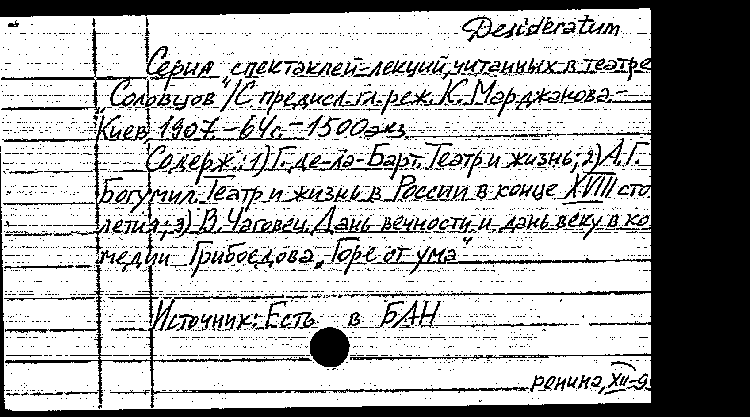 Desideratum
Серия спектаклей-лекций, читанных в театре
„Соловцов"/С предисл. гл. реж. К. Марджанова.-
Киев, 1907.-64с.-1500экз.
Содерж.: 1) Г. де-ла-Барт. Театр и жизнь; 2) А.Г.
Богумил. Театр и жизнь в России в конце XVIII сто
летия; 3) В. Чаговец. Дань вечности и дань веку в ко
медии Грибоедова „Горе от ума"
Источник: Есть в БАН
ронина, XII-9